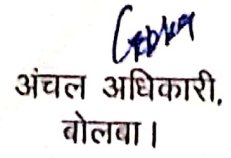 अंचल अधिकारी,
बोलबा।